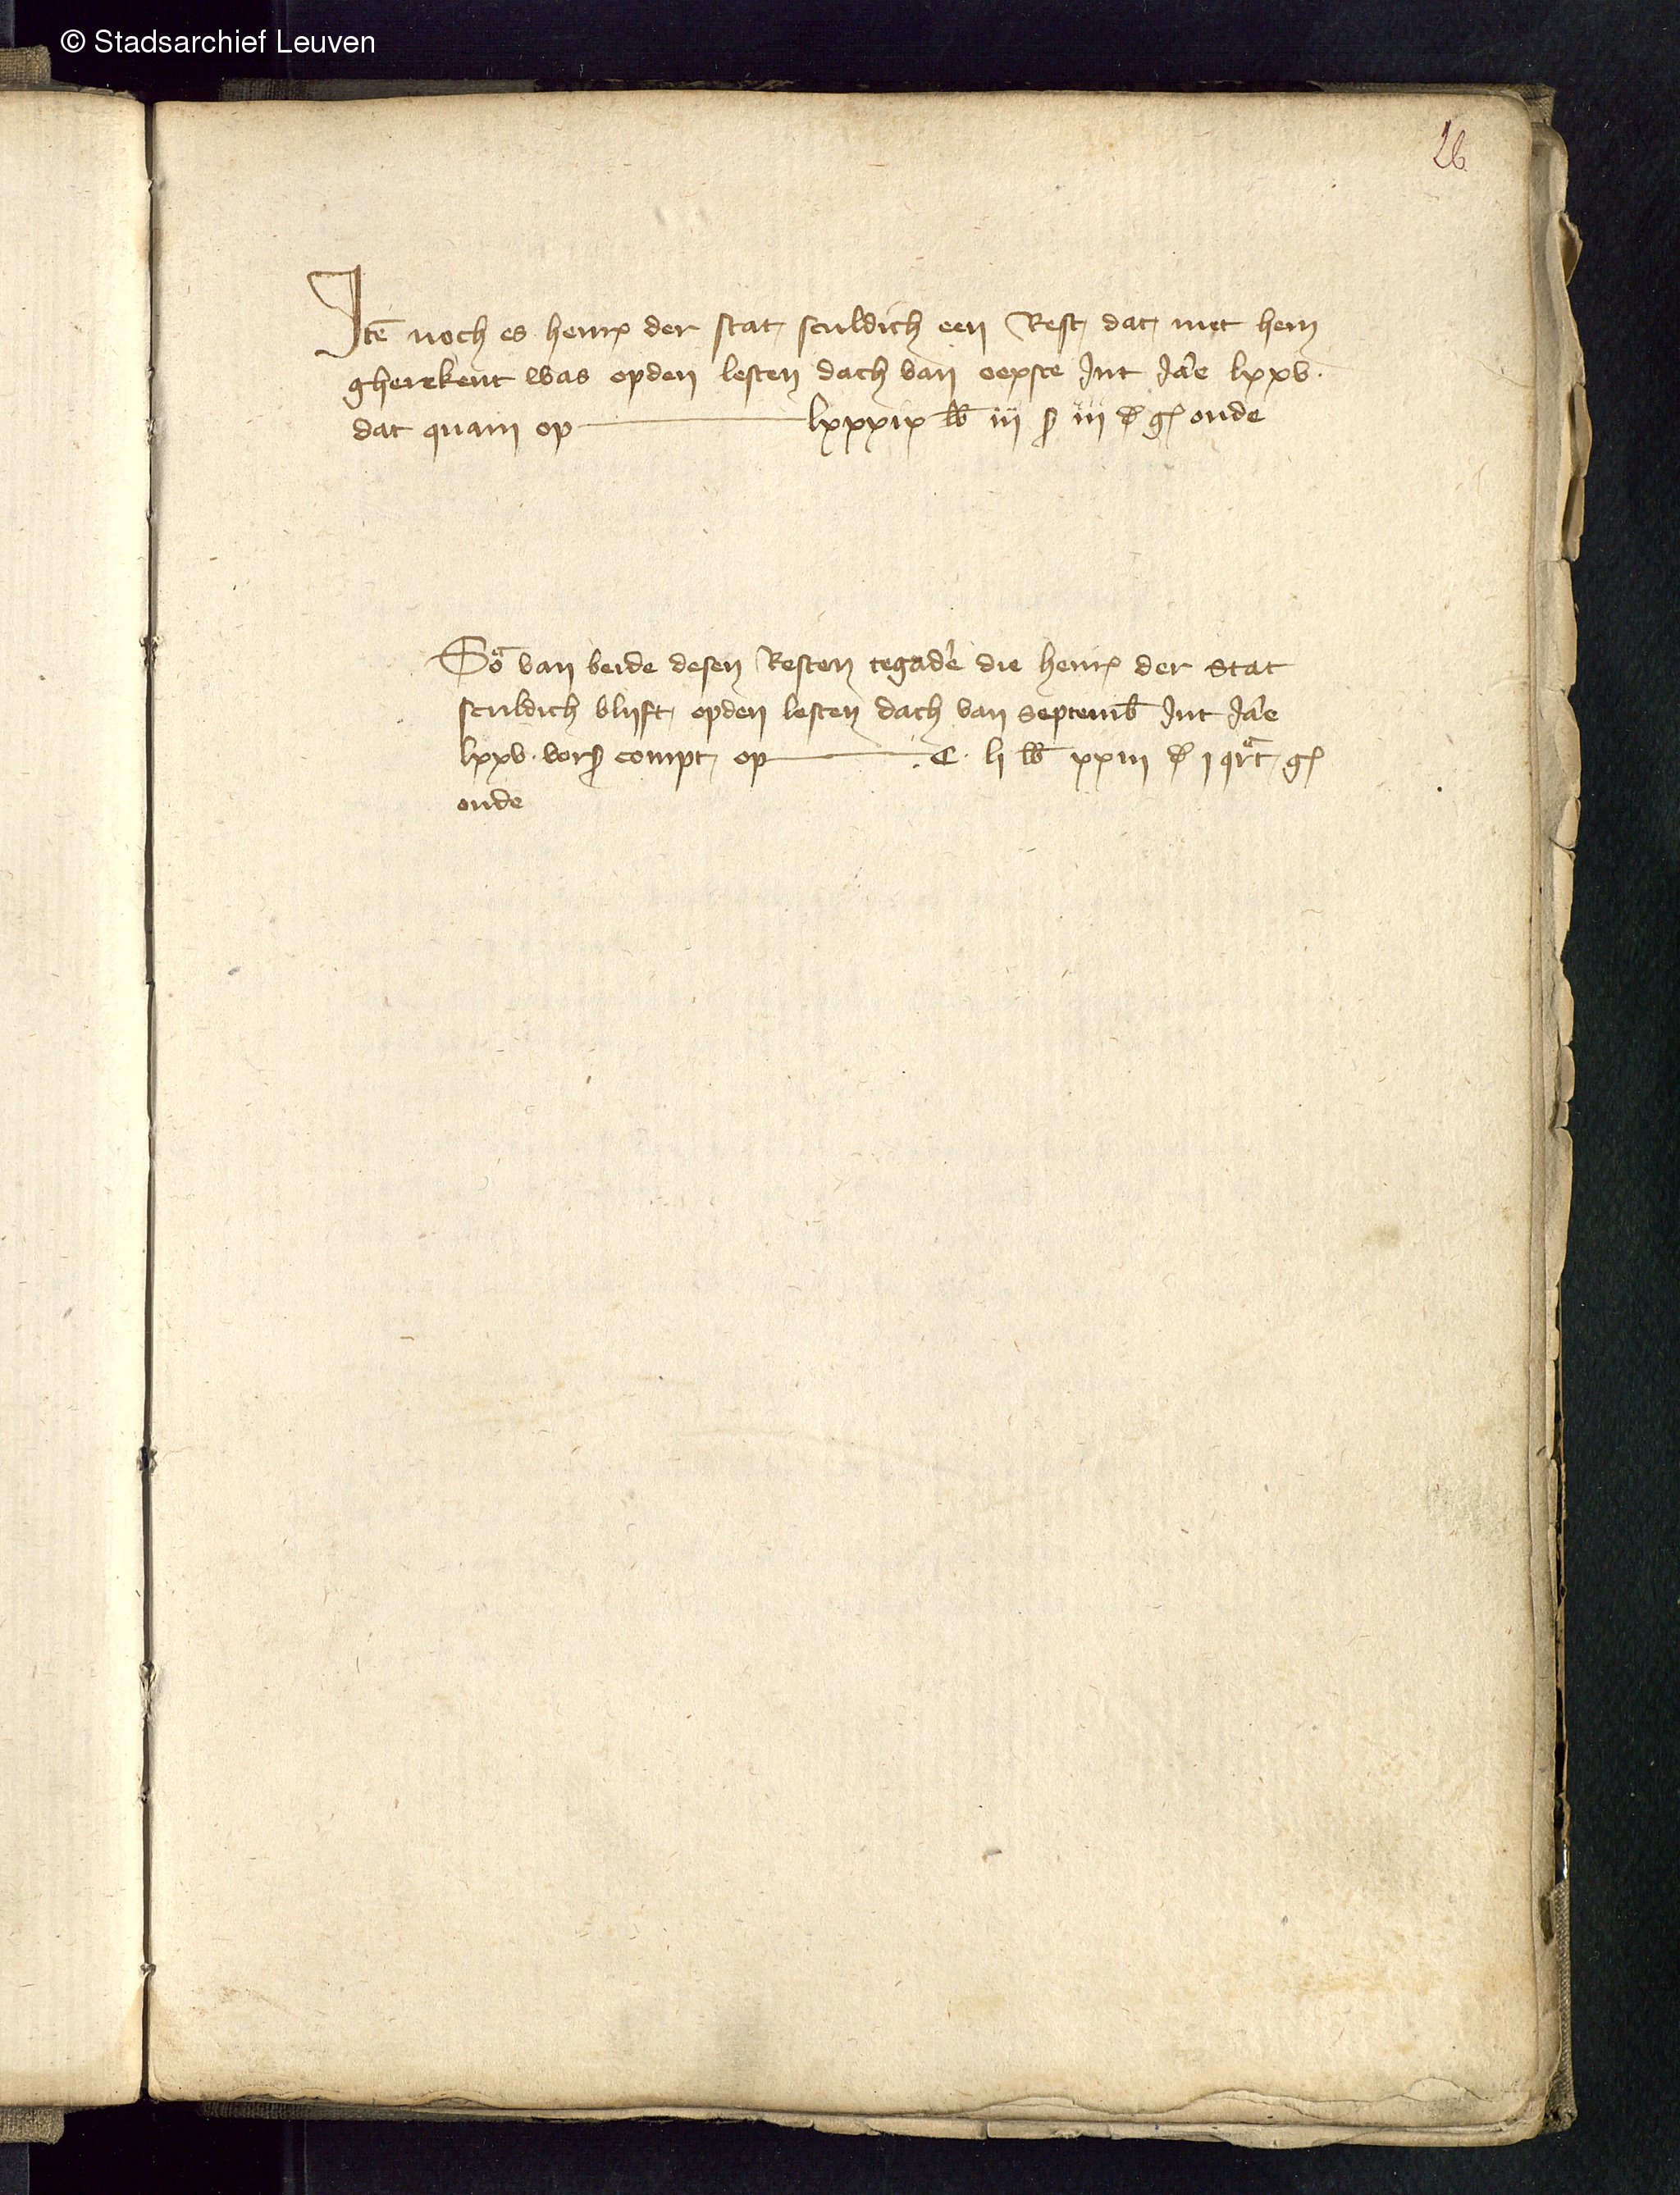 © Stadsarchief Leuven
26
Itē noch es henr̄ der stat sculdich een Rest dat met hem
gherekent was opden lesten dach van oexste Int Ja'e lxxv.
dat quam op lxxxix lb iii s iii d gr oude
So̅ van beide desen Resten tegad'e die henr̄ der stat
sculdich blijft opden lesten dach van septemb̄ Int Ja'e
lxxv. vors compt op .C. li lb xxiii d i qrt gr
oude